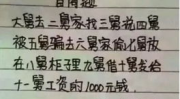 大舅去二舅家找三舅说四舅
被五舅骗去六舅家偷七舅放
在八舅柜子里九舅借十舅发给
十一舅工资的1000元钱